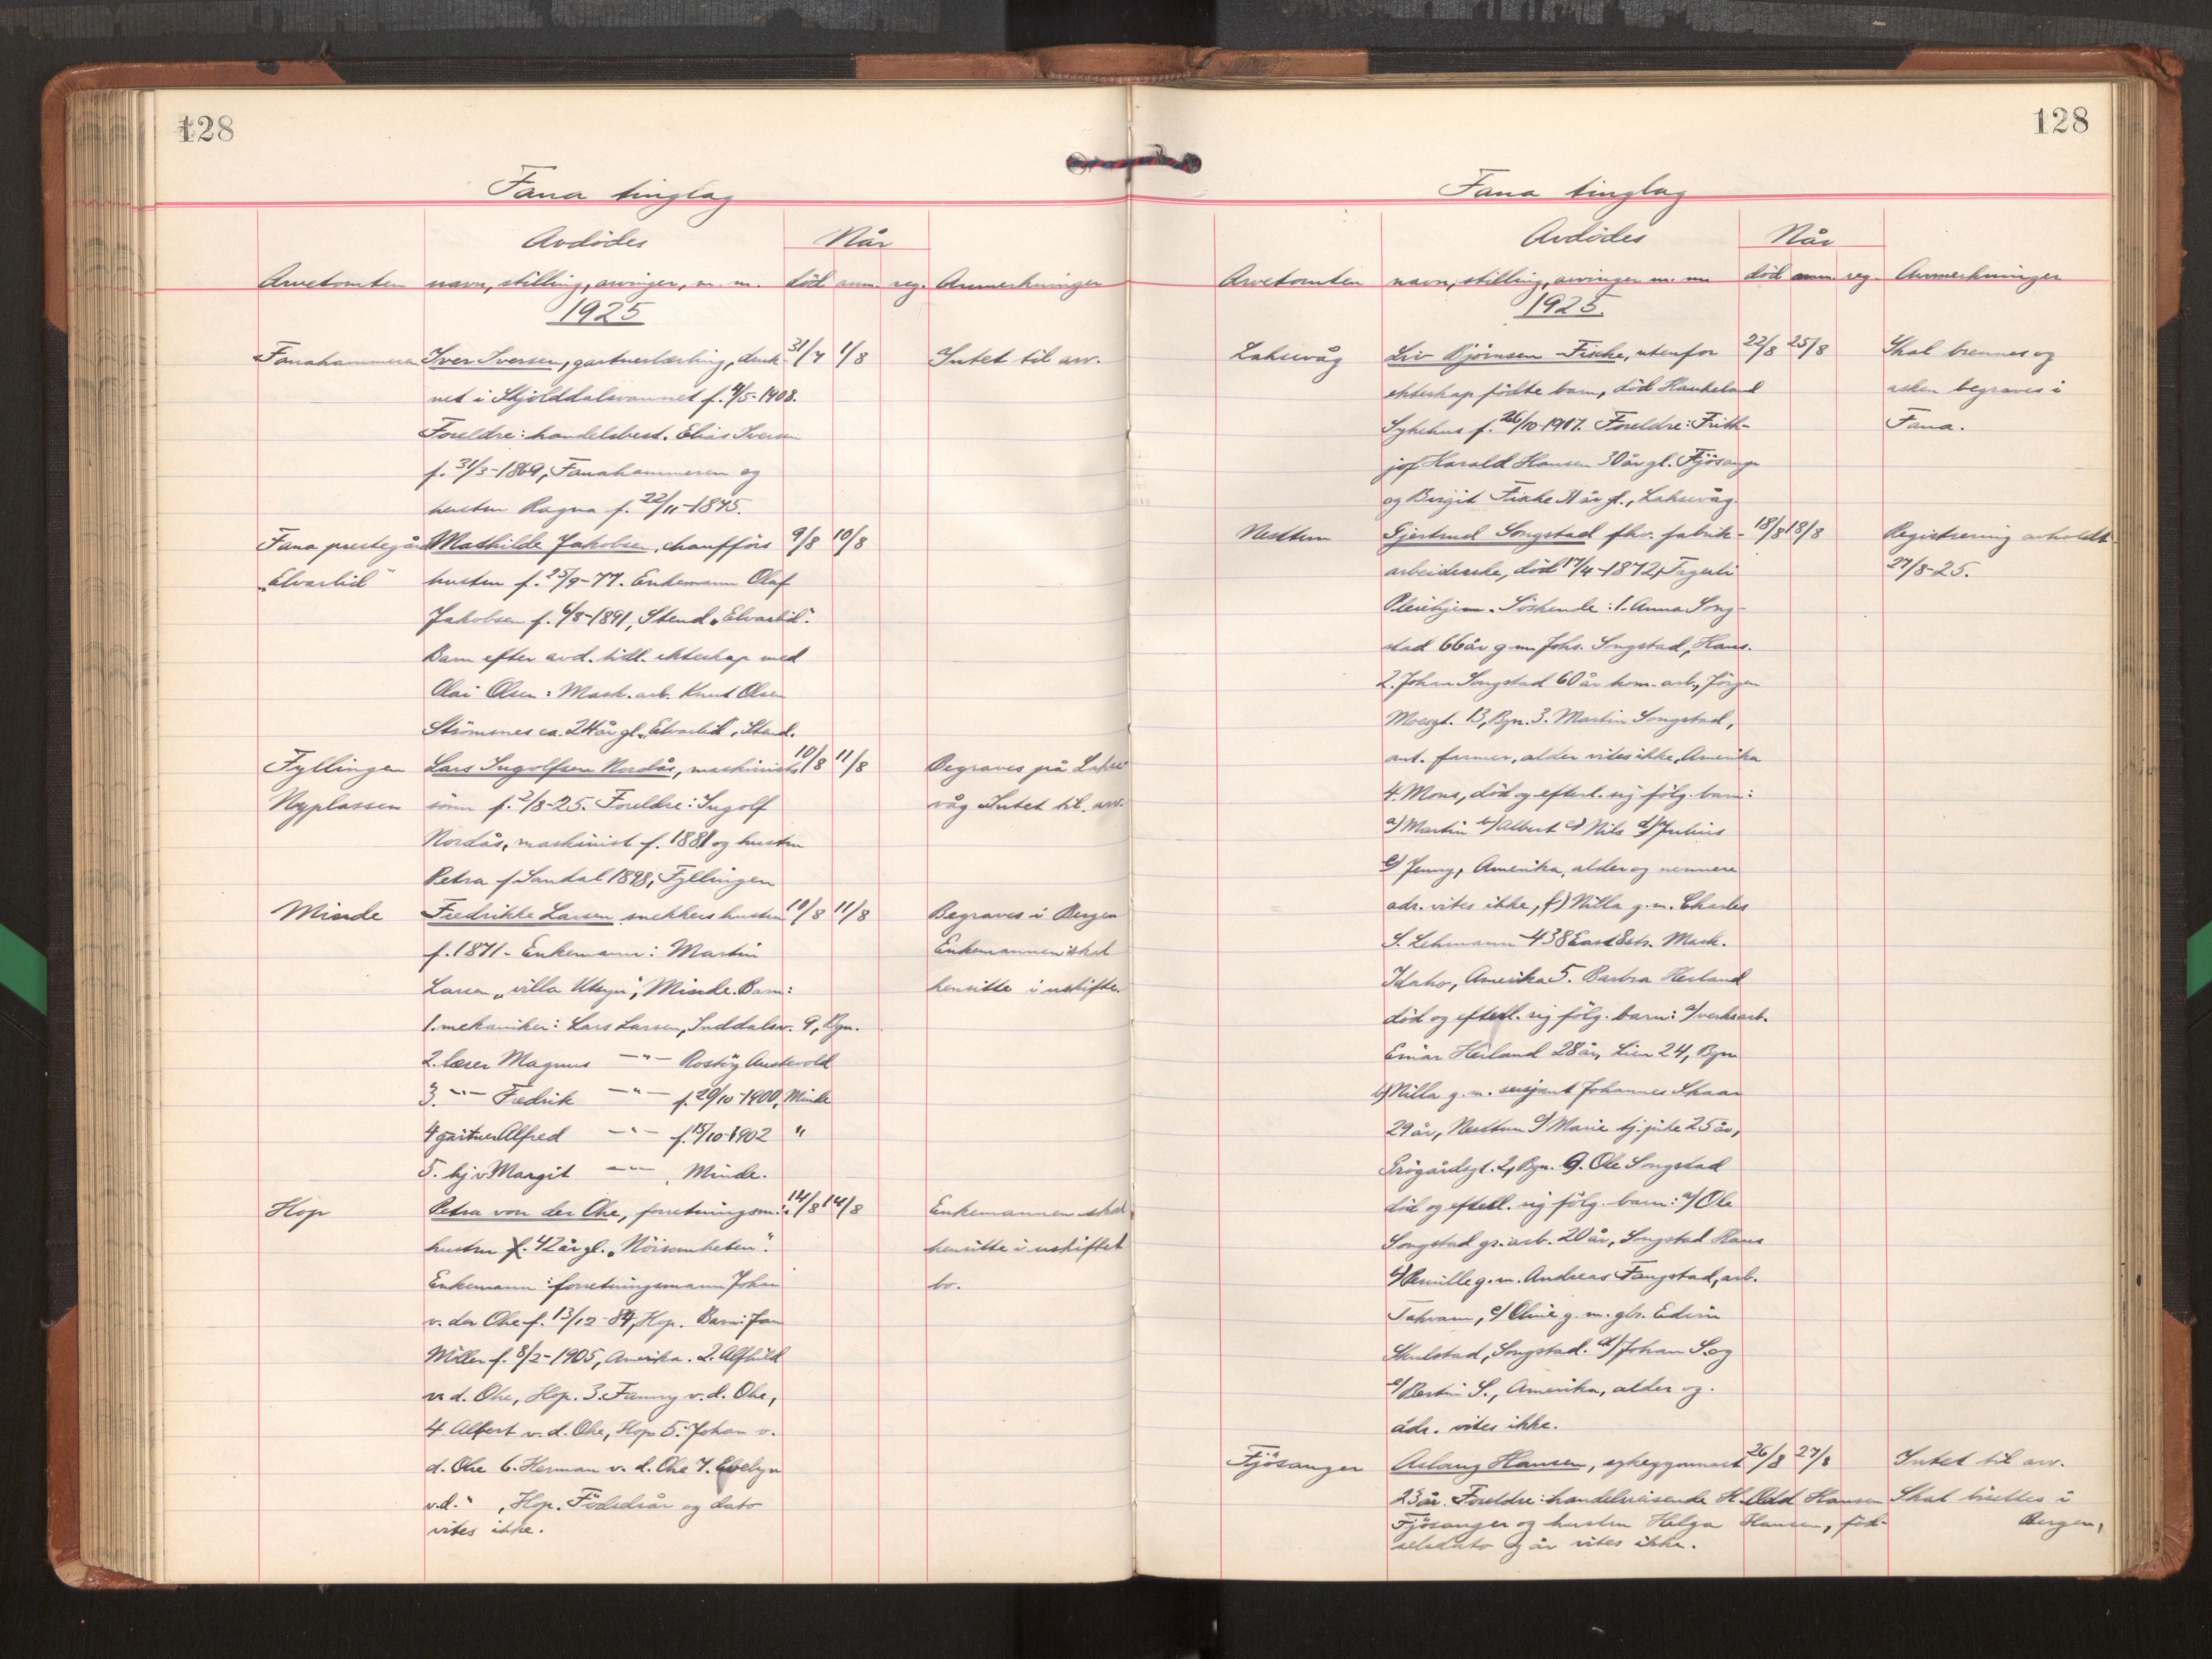 128
Fana tinglag
Avdödes Når
Arvetomten navn, stilling, arvinger, m. m. död anm. reg. Anmerkninger
1925
Fanahammeren Iver Iversen, gartnerlærling, druk- 31/7 1/8 Intet til arv.
net i Skjolddalsvannet f. 4/5-1908.
Foreldre: handelsbest. Elias Iversen
f. 31/3-1869, Fanahammeren og
hustru Ragna f. 22/11-1875.
Fana prestegård Mathilde Jakobsen, chaufförs 9/8 10/8
„Elvarlid" hustru f. 25/9-77. Enkemann Olaf
Jakobsen f. 6/8-1891, Stend „Elvarlid".
Barn efter avd. tidl. ekteskap med
Olai Olsen: Mask. arb. Knut Olsen
Strömsnes ca. 24 år gl. „Elvarlid", Stend.
Fyllingen Lars Ingolfsen Nordås, maskinists 10/8 11/8 Begraves på Lakse-
Nyplassen sönn f. 2/8-25. Foreldre: Ingolf våg Intet til arv.
Nordås, maskinist f. 1881 og hustru
Petra f Sandal 1898, Fyllingen
Minde Fredrikke Larsen snekkers hustru 10/8 11/8 Begraves i Bergen
f. 1871 - Enkemann: Martin Enkemannen skal
Larsen „villa Utsyn", Minde. Barn: hensitte i uskifte.
1. mekaniker: Lars Larsen, Inddalsv. 9, Bgn.
2. lærer Magnus —"— Rostöy Austevold
3. —"— Fredrik —"— f. 29/10-1900, Minde
4 gartner Alfred —"— f. 15/10-1902 "
5. hjv Margit —"— , Minde.
Hop Petra von der Ohe, forretningsm.s 14/8 14/8 Enkemannen skal
hustru f. 42 år gl. „Nöisomheten". hensitte i uskiftet
Enkemann: forretningsmann Johan bo.
v. der Ohe f. 13/12-84, Hop. Barn: Jan
Möller f. 8/2-1905, Amerika. 2. Alfhild
v. d. Ohe, Hop. 3. Fanny v. d. Ohe,
4. Albert v. d. Ohe, Hop 5. Johan v.
d. Ohe 6. Herman v. d. Ohe 7. Evelyn
v.d. " , Hop. Födselsår og dato
vites ikke.
128
Fana tinglag
Avdödes Når
Arvetomten navn, stilling, arvinger m. m död anm. reg. Anmerkninger
1925.
Laksevåg Liv Björnsen Fiske, utenfor 22/8 25/8 Skal brennes og
ekteskap födte barn, död Haukeland asken begraves i
Sykehus f. 26/10-1917. Foreldre: Frith- Fana.
jof Harald Hansen 30 år gl. Fjösanger
og Birgit Fiske 31 år gl., Laksevåg.
Nesttun Gjertrud Songstad fhv. fabrik- 18/8 18/8 Registrering avholdt
arbeiderske, död 17/4-1872, Fagerli 27/8-25.
Pleiehjem. Söskende: 1. Anna Song-
stad 66 år g.m. Johs. Songstad, Haus.
2. Johan Songstad 60 år kom. arb., Jörgen
Moesgt. 13, Bgn. 3. Martin Songstad,
ant. farmer, alder vites ikke, Amerika
4. Mons, död og efterl. sig fölg. barn:
a) Martin b) Albert c) Nils d) Julius
e) Jenny, Amerika, alder og nærmere
adr. vites ikke, f) Nilla g. m. Charles
S. Lehmann 438 East 8 str. Mosk.
Idaho, Amerika 5. Barbra Herland
död og efterl. sig fölg. barn: a) verksarb.
Einar Herland 28 år, Lien 24, Bgn
b) Nilla g. m. sersjant Johannes Skaar
29 år, Nesttun c) Marie tj. pike 25 år,
2, Bgn. 6. Ole Songstad
död og efterl. sig fölg. barn: a) Ole
Songstad gr. arb. 20 år, Songstad Haus
b) Pernille g. m. Andreas Fangstad, arb.
Takvam, c) Oline g. m. gbr. Edvin
Skulstad, Songstad. d) Johan S. og
e) Bertin S., Amerika, alder og.
adr. vites ikke.
Fjösanger Aslaug Hansen, sykegymnast 26/8 27/8 Intet til arv.
23 år. Foreldre: handelsreisende H. Odd Hansen Skal bisettes i
Fjösanger og hustru Helga Hansen, föd- Bergen,
selsdato og år vites ikke.